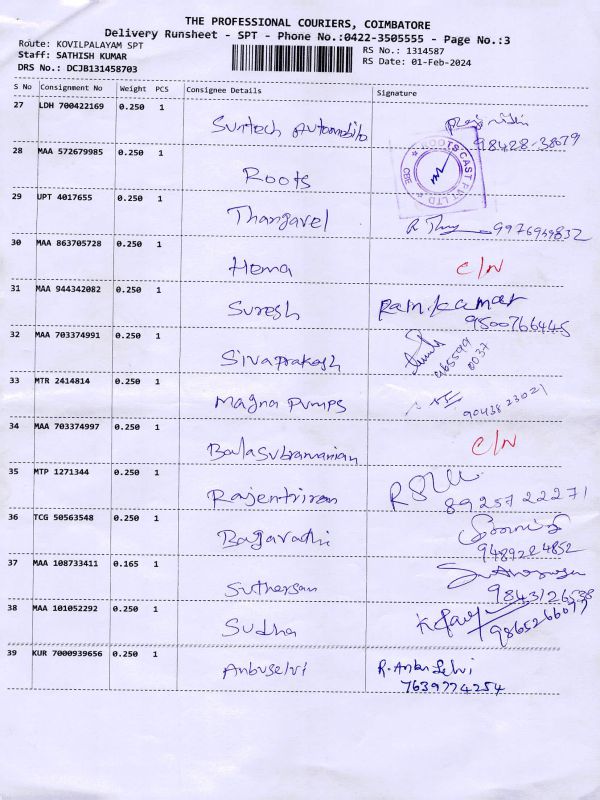 THE PROFESSIONAL COURIERS, COIMBATORE
Delivery Runsheet - SPT - Phone No.:0422-3505555 - Page No.:3
Route: KOVILPALAYAM SPT
RS No.: 1314587
Staff: SATHISH KUMAR
RS Date: 01-Feb-2024
DRS No.: DCJB131458703
S No Consignment No Weight PCS Consignee Details Signature
27 LDH 700422169 0.250 1
Suntech Automobils
98428-38679
28 MAA 572679985 0.250 1
Roots
ROOTS CAST PVT LTD CBE
29 UPT 4017655 0.250 1
Thangavel
9976959832
30 MAA 863705728 0.250 1
Hema C/N
31 MAA 944342082 0.250 1
Suresh Ram.kumar
9500766445
32 MAA 703374991 0.250 1
Sivaprakash
965599
8037
33 MTR 2414814 0.250 1
Magna Pumps
90438 23021
34 MAA 703374997 0.250 1
Balasubramanian C/N
35 MTP 1271344 0.250 1
Rajentriran
89257 22271
36 TCG 50563548 0.250 1
Bagavathi
9489224852
37 MAA 108733411 0.165 1
Suthersan
9843126538
38 MAA 101052292 0.250 1
Sudha
9865266077
39 KUR 7000939656 0.250 1
Anbuselvi R. Anbu Selvi
7639774254